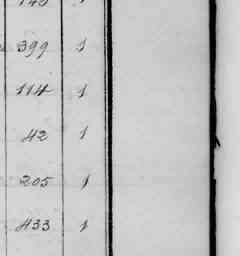 399 1
114 1
42 1
205 1
433 1